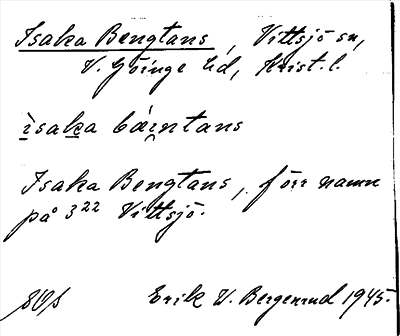 Isaka Bengtans, Vittsjö sn,
V. Göinge hd, Krist. l.
ìsaka bäintans
Isaka Bengtans, förr namn
på 3²² Vittsjö.
Erik W. Bergenrud 1945.